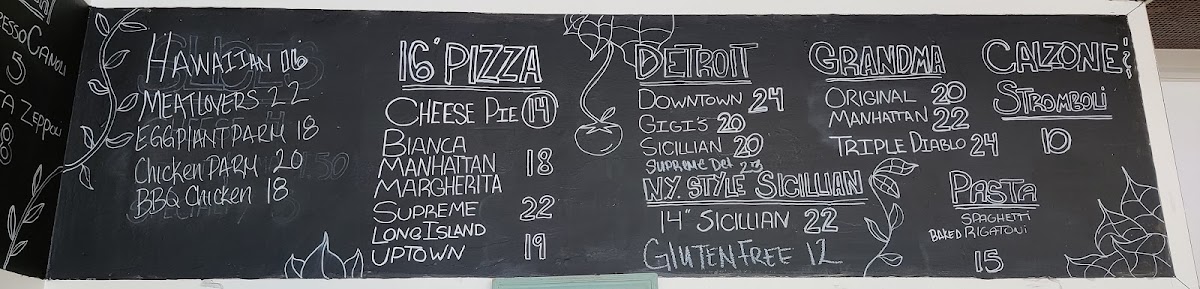 ESSO CANOLI
5
TA ZEPPOLI
8
HAWAIIAN 16
MEATLOVERS 22
EGGPLANT PARM 18
CHICKEN PARM 20
BBQ CHICKEN 18
16" PIZZA
CHEESE PIE 14
BIANCA
MANHATTAN 18
MARGHERITA
SUPREME 22
LONG ISLAND
UPTOWN 19
DETROIT
DOWNTOWN 24
GIGI'S 20
SICILLIAN 20
SUPREME Det
N.Y. STYLE SICILLIAN
14" SICILLIAN 22
GLUTENFREE 12
GRANDMA
ORIGINAL 20
MANHATTAN 22
TRIPLE DIABLO 24
CALZONE &
STROMBOLI
10
PASTA
SPAGHETTI
BAKED RIGATONI
15